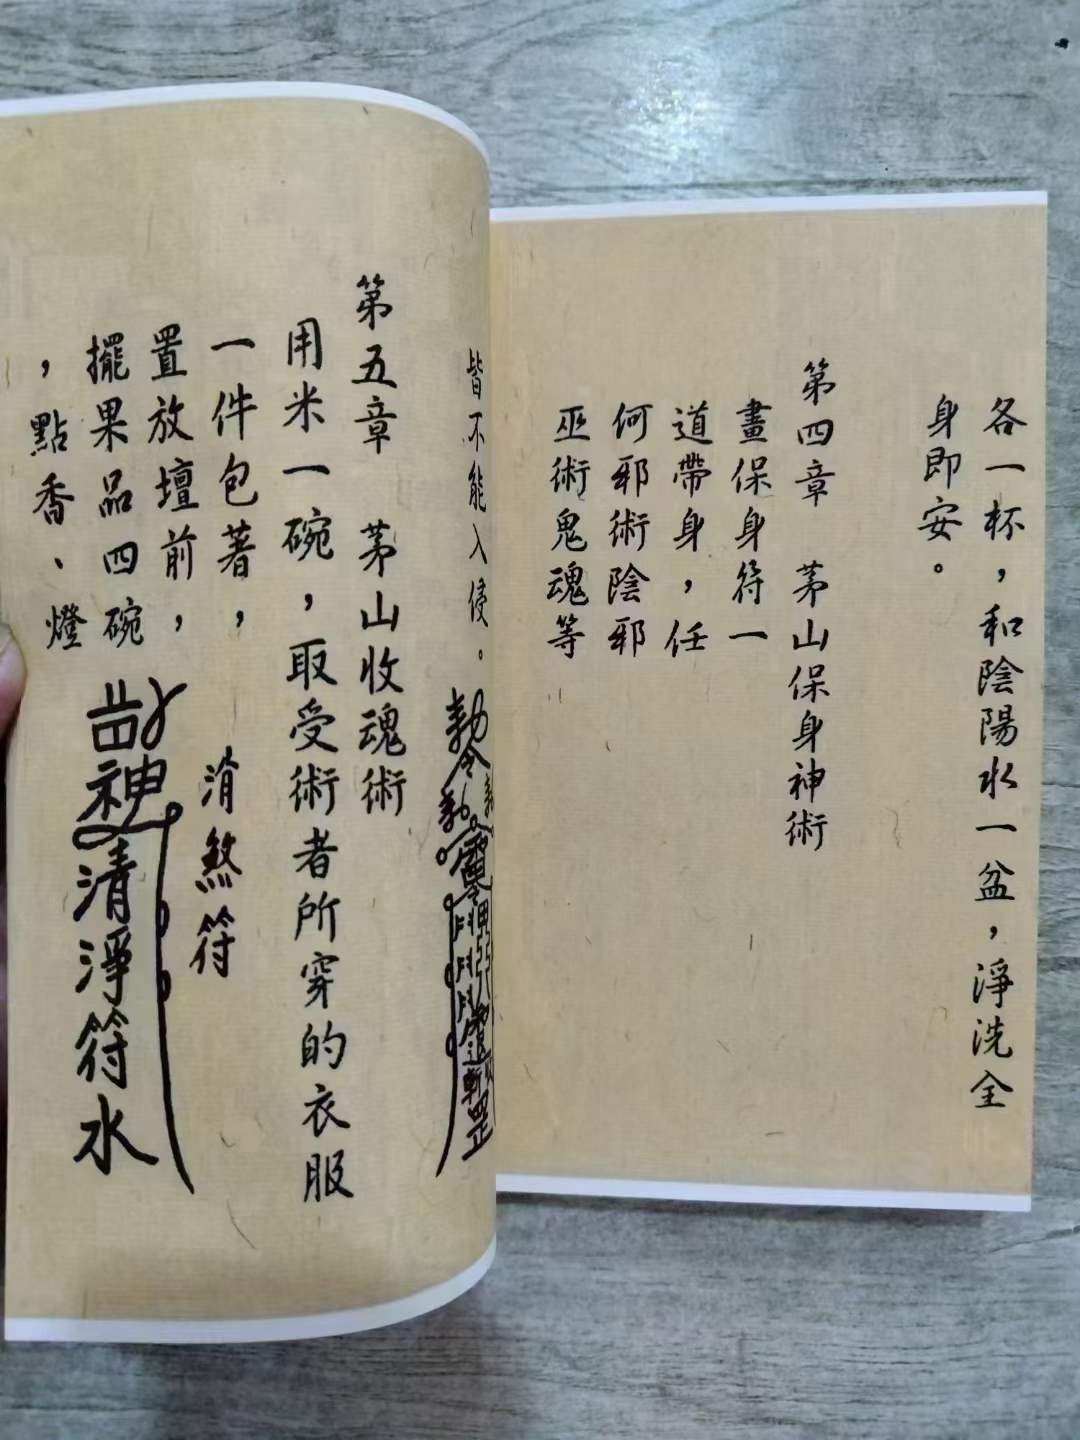 各一杯，和陰陽水一盆，淨洗全
身即安。
第四章　茅山保身神術
畫保身符一
道帶身，任
何邪術陰邪
巫術鬼魂等
皆不能入侵。
第五章　茅山收魂術
用米一碗，取受術者所穿的衣服
一件包著，
置放壇前，
擺果品四碗
，點香、燈
消煞符
神清淨符水